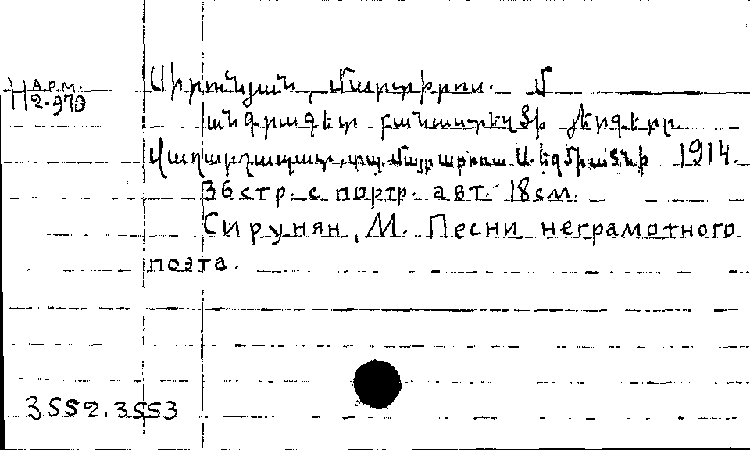 АРМ.
Н 2-970
Սիրունյան, Մարտիրոս. Մ
անգրագետ բանաստեղծի երգերը.
Վաղարշապատ, տպ. Մայր աթոռ Ս. Էջմիածնի 1914.
36 стр. с портр. авт. 18 см.
Сирунян, М. Песни неграмотного
поэта.
3552.3553